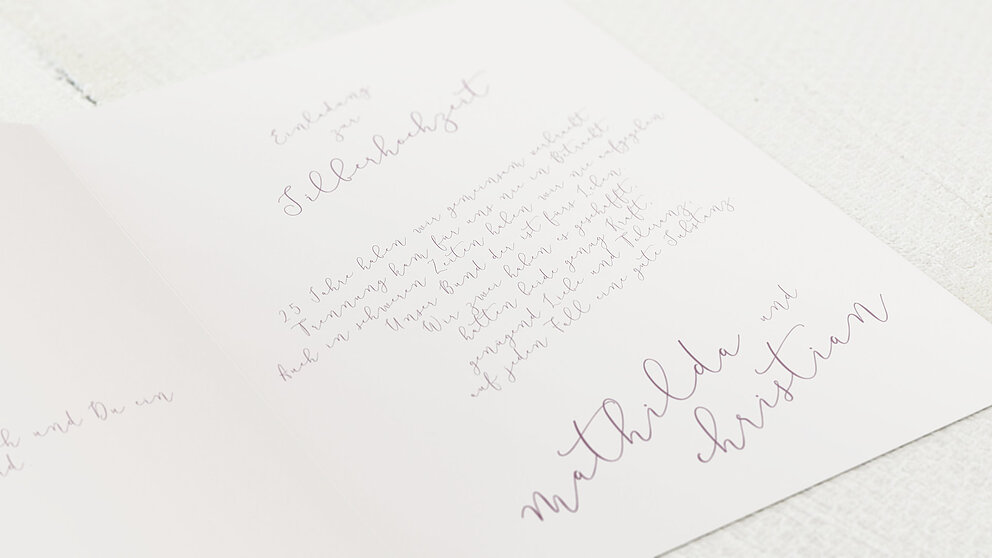 h und Du ein
d.
Einladung
zur
Silberhochzeit
25 Jahre haben wir gemeinsam verbracht
Trennung kam für uns nie in Betracht.
Auch in schweren Zeiten haben wir nie aufgegeben
Unser Bund der ist fürs Leben.
Wir zwei haben es geschafft,
hatten beide genug Kraft,
genügend Liebe und Toleranz,
auf jeden Fall eine gute Substanz
mathilda und
christian